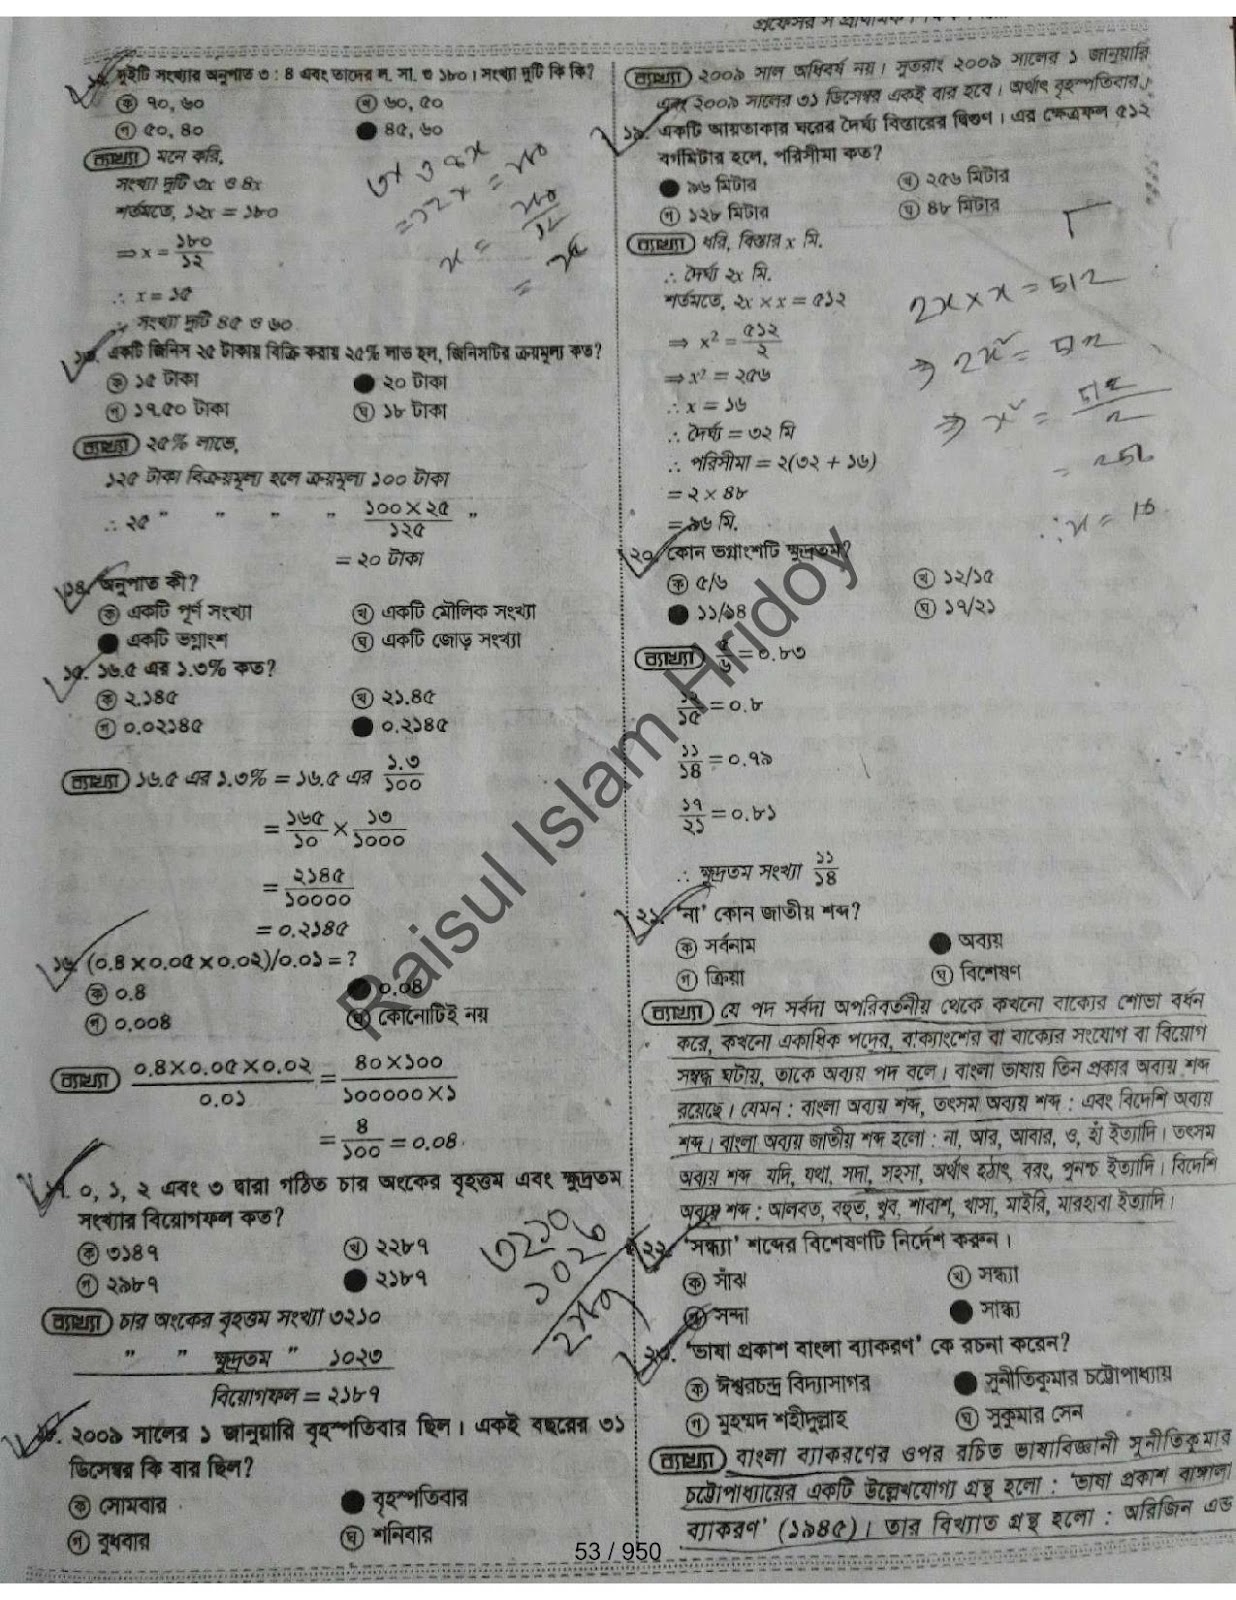 ১২. দুইটি সংখ্যার অনুপাত ৩ : ৪ এবং তাদের ল. সা. গু ১৮০। সংখ্যা দুটি কি কি?
ক ৭০, ৬০ খ ৬০, ৫০
গ ৫০, ৪০ ● ৪৫, ৬০
ব্যাখ্যা মনে করি,
সংখ্যা দুটি ৩x ও ৪x
শর্তমতে, ১২x = ১৮০
⇒ x = ১৮০/১২
∴ x = ১৫
∴ সংখ্যা দুটি ৪৫ ও ৬০
১৩. একটি জিনিস ২৫ টাকায় বিক্রি করায় ২৫% লাভ হল, জিনিসটির ক্রয়মূল্য কত?
ক ১৫ টাকা ● ২০ টাকা
গ ১৭.৫০ টাকা ঘ ১৮ টাকা
ব্যাখ্যা ২৫% লাভে,
১২৫ টাকা বিক্রয়মূল্য হলে ক্রয়মূল্য ১০০ টাকা
∴ ২৫ " " " " ১০০×২৫/১২৫ "
= ২০ টাকা
১৪. অনুপাত কী?
ক একটি পূর্ণ সংখ্যা খ একটি মৌলিক সংখ্যা
● একটি ভগ্নাংশ ঘ একটি জোড় সংখ্যা
১৫. ১৬.৫ এর ১.৩% কত?
ক ২.১৪৫ খ ২১.৪৫
গ ০.০২১৪৫ ● ০.২১৪৫
ব্যাখ্যা ১৬.৫ এর ১.৩% = ১৬.৫ এর ১.৩/১০০
= ১৬৫/১০ × ১৩/১০০০
= ২১৪৫/১০০০০
= ০.২১৪৫
১৬. (০.৪×০.০৫×০.০২)/০.০১ = ?
ক ০.৪ ● ০.০৪
গ ০.০০৪ ঘ কোনোটিই নয়
ব্যাখ্যা ০.৪×০.০৫×০.০২/০.০১ = ৪০×১০০/১০০০০০×১
= ৪/১০০ = ০.০৪
১৭. ০, ১, ২ এবং ৩ দ্বারা গঠিত চার অংকের বৃহত্তম এবং ক্ষুদ্রতম
সংখ্যার বিয়োগফল কত?
ক ৩১৪৭ খ ২২৮৭
গ ২৯৮৭ ● ২১৮৭
ব্যাখ্যা চার অংকের বৃহত্তম সংখ্যা ৩২১০
" " ক্ষুদ্রতম " ১০২৩
বিয়োগফল = ২১৮৭
১৮. ২০০৯ সালের ১ জানুয়ারি বৃহস্পতিবার ছিল। একই বছরের ৩১
ডিসেম্বর কি বার ছিল?
ক সোমবার ● বৃহস্পতিবার
গ বুধবার ঘ শনিবার
৩x ৩ ৪x
= ১২x = ১৮০
x = ১৮০/১২
= ১৫
৩২১০
১০২৩
২১৮৭
ব্যাখ্যা ২০০৯ সাল অধিবর্ষ নয়। সুতরাং ২০০৯ সালের ১ জানুয়ারি
এবং ২০০৯ সালের ৩১ ডিসেম্বর একই বার হবে। অর্থাৎ বৃহস্পতিবার।
১৯. একটি আয়তাকার ঘরের দৈর্ঘ্য বিস্তারের দ্বিগুণ। এর ক্ষেত্রফল ৫১২
বর্গমিটার হলে, পরিসীমা কত?
● ৯৬ মিটার খ ২৫৬ মিটার
গ ১২৮ মিটার ঘ ৪৮ মিটার
ব্যাখ্যা ধরি, বিস্তার x মি.
∴ দৈর্ঘ্য ২x মি.
শর্তমতে, ২x × x = ৫১২
⇒ x² = ৫১২/২
⇒ x² = ২৫৬
∴ x = ১৬
∴ দৈর্ঘ্য = ৩২ মি
∴ পরিসীমা = ২(৩২ + ১৬)
= ২ × ৪৮
= ৯৬ মি.
2x × x = 512
⇒ 2x² = 512
⇒ x² = 512/2
= 256
∴ x = 16
২০. কোন ভগ্নাংশটি ক্ষুদ্রতম?
ক ৫/৬ খ ১২/১৫
● ১১/১৪ ঘ ১৭/২১
ব্যাখ্যা ৫/৬ = ০.৮৩
১২/১৫ = ০.৮
১১/১৪ = ০.৭৯
১৭/২১ = ০.৮১
∴ ক্ষুদ্রতম সংখ্যা ১১/১৪
২১. 'না' কোন জাতীয় শব্দ?
ক সর্বনাম ● অব্যয়
গ ক্রিয়া ঘ বিশেষণ
ব্যাখ্যা যে পদ সর্বদা অপরিবর্তনীয় থেকে কখনো বাক্যের শোভা বর্ধন
করে, কখনো একাধিক পদের, বাক্যাংশের বা বাক্যের সংযোগ বা বিয়োগ
সম্বন্ধ ঘটায়, তাকে অব্যয় পদ বলে। বাংলা ভাষায় তিন প্রকার অব্যয় শব্দ
রয়েছে। যেমন : বাংলা অব্যয় শব্দ, তৎসম অব্যয় শব্দ : এবং বিদেশি অব্যয়
শব্দ। বাংলা অব্যয় জাতীয় শব্দ হলো : না, আর, আবার, ও, হাঁ ইত্যাদি। তৎসম
অব্যয় শব্দ যদি, যথা, সদা, সহসা, অর্থাৎ হঠাৎ, বরং, পুনশ্চ ইত্যাদি। বিদেশি
অব্যয় শব্দ : আলবত, বহুত, খুব, শাবাশ, খাসা, মাইরি, মারহাবা ইত্যাদি।
২২. 'সন্ধ্যা' শব্দের বিশেষণটি নির্দেশ করুন।
ক সাঁঝ খ সন্ধ্যা
গ সন্দা ● সান্ধ্য
২৩. 'ভাষা প্রকাশ বাংলা ব্যাকরণ' কে রচনা করেন?
ক ঈশ্বরচন্দ্র বিদ্যাসাগর ● সুনীতিকুমার চট্টোপাধ্যায়
গ মুহম্মদ শহীদুল্লাহ ঘ সুকুমার সেন
ব্যাখ্যা বাংলা ব্যাকরণের ওপর রচিত ভাষাবিজ্ঞানী সুনীতিকুমার
চট্টোপাধ্যায়ের একটি উল্লেখযোগ্য গ্রন্থ হলো : 'ভাষা প্রকাশ বাঙ্গালা
ব্যাকরণ' (১৯৪৫)। তার বিখ্যাত গ্রন্থ হলো : অরিজিন এন্ড
Raisul Islam Hridoy
53 / 950